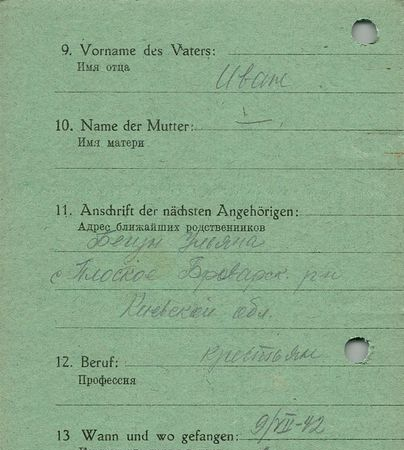 9. Vorname des Vaters:
Имя отца
Иван
10. Name der Mutter:
Имя матери
11. Anschrift der nächsten Angehörigen:
Адрес ближайших родственников
Бегун Ульяна
с Плоское Броварск. р-н
Киевской обл.
12. Beruf:
крестьян
Профессия
13 Wann und wo gefangen:
9/VII-42